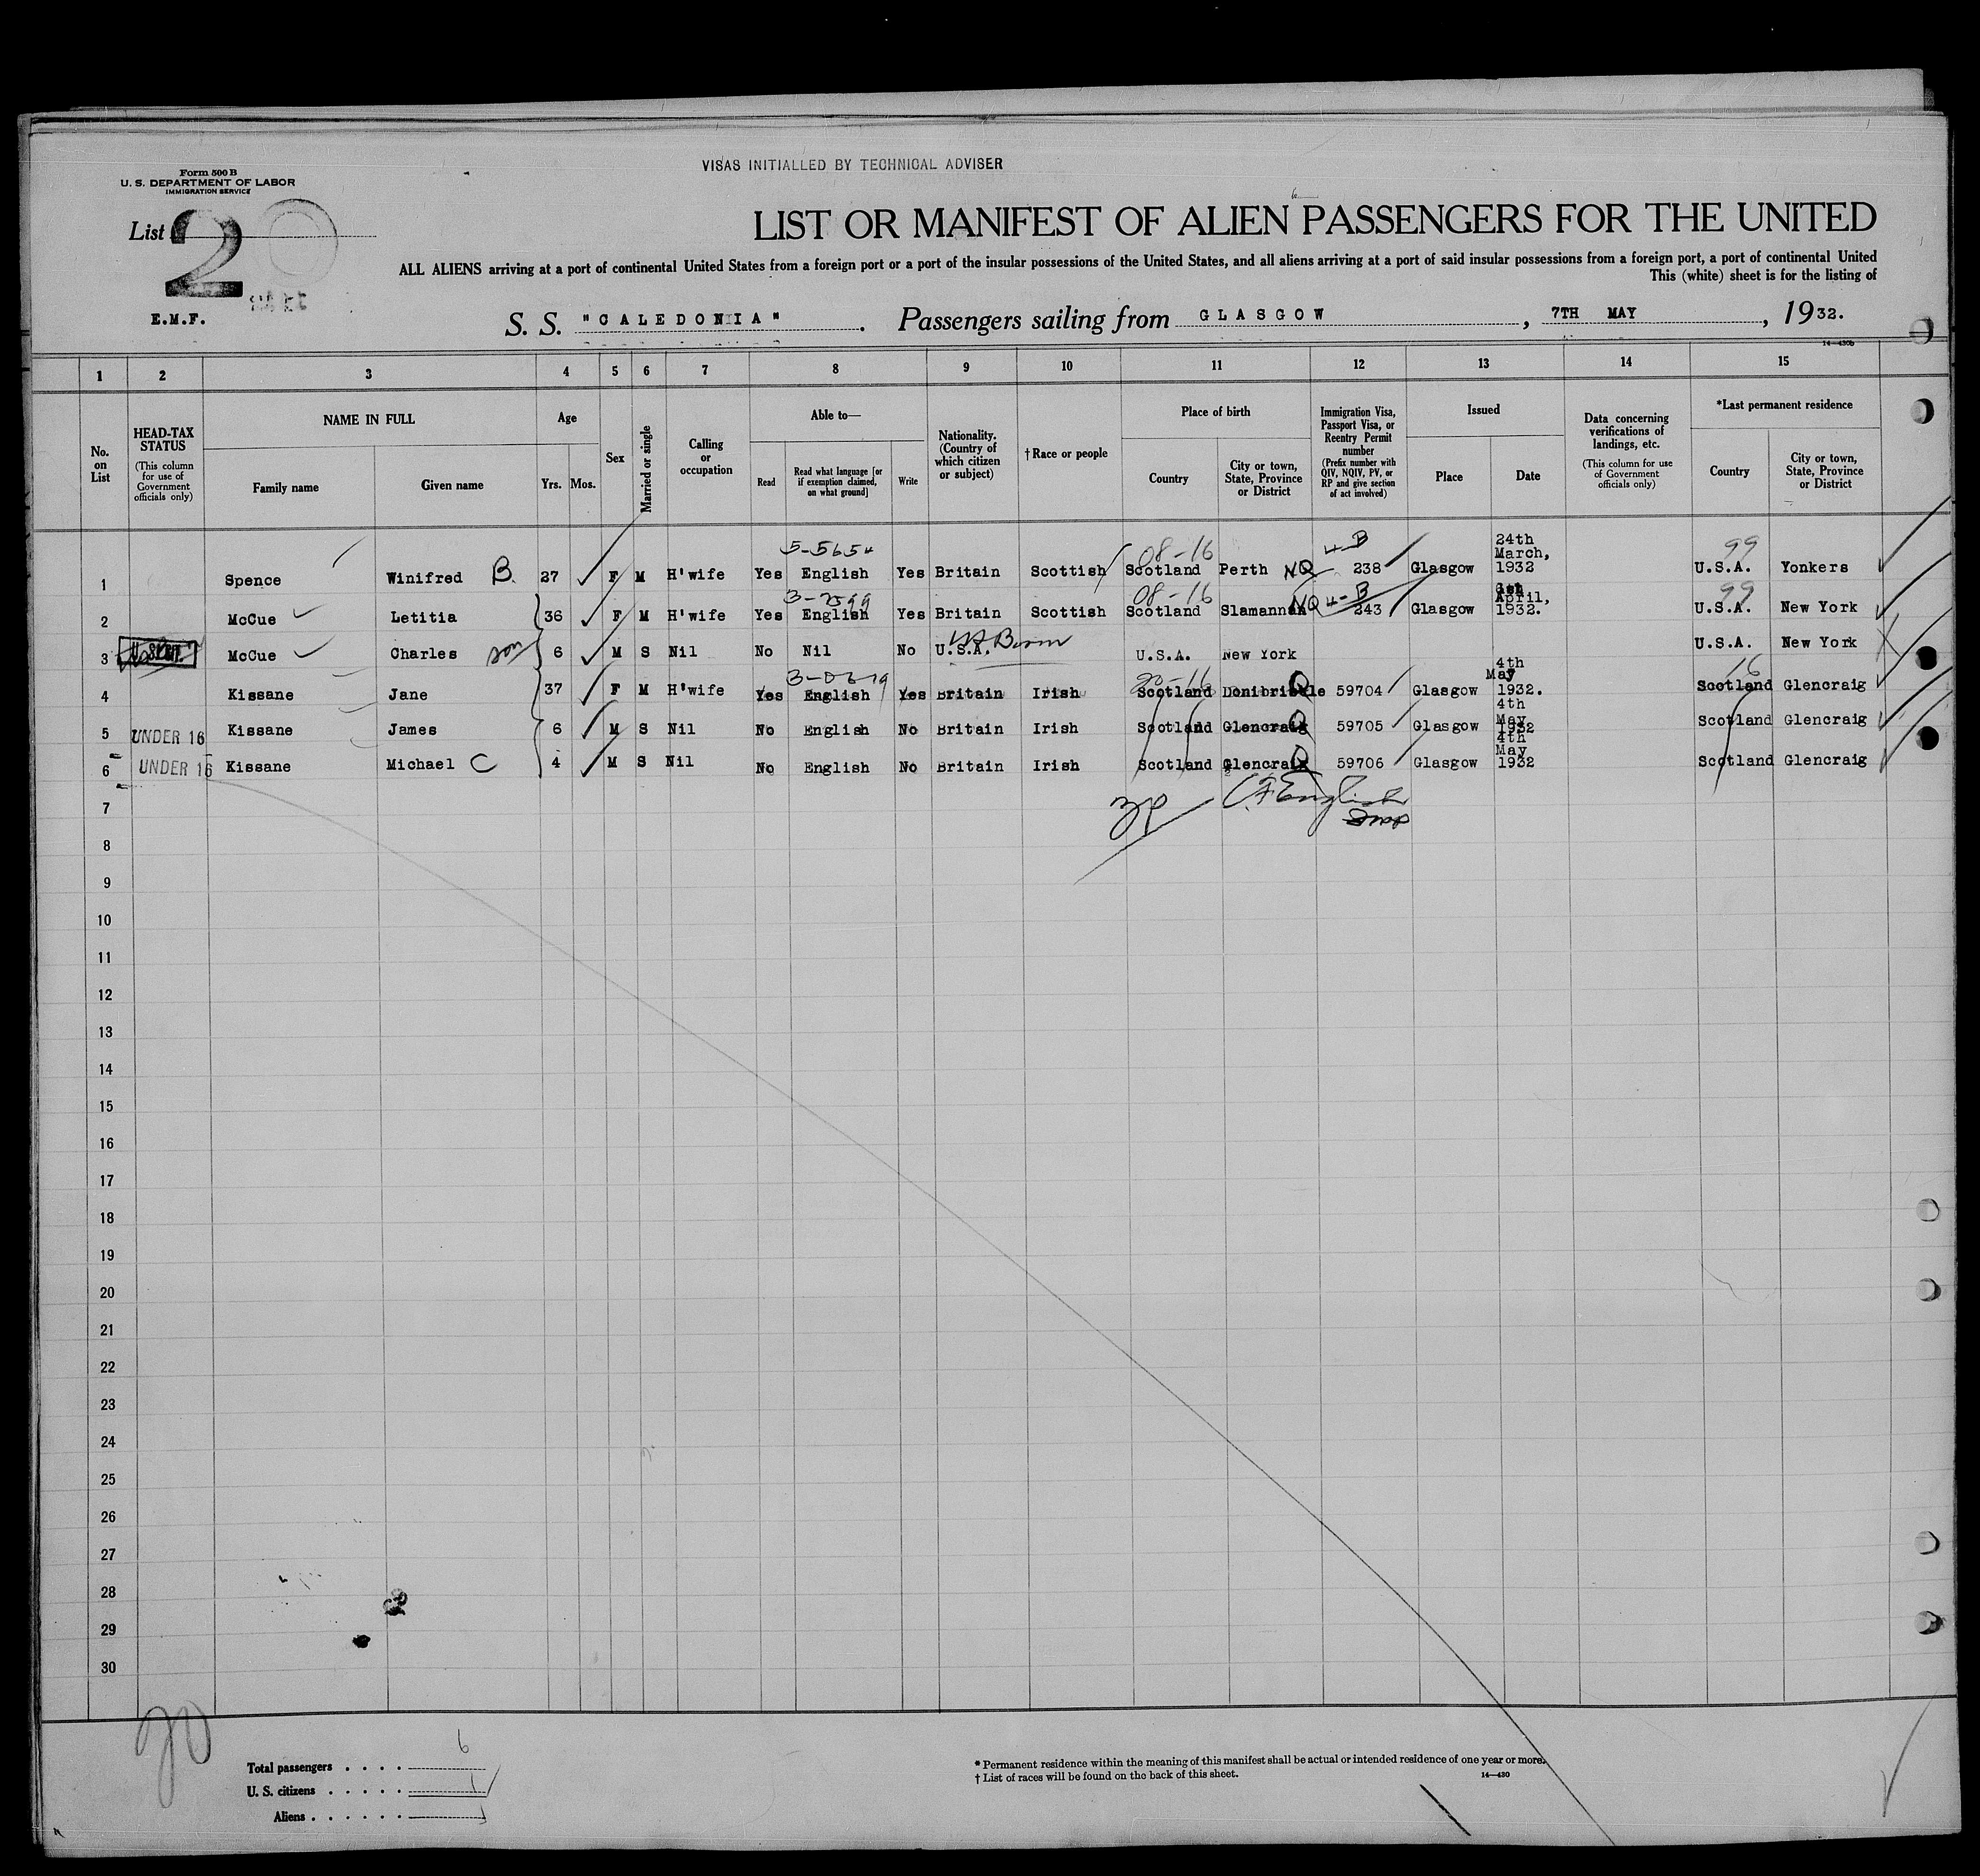 VISAS INITIALLED BY TECHNICAL ADVISER
Form 500 B
U. S. DEPARTMENT OF LABOR
IMMIGRATION SERVICE
List 2
LIST OR MANIFEST OF ALIEN PASSENGERS FOR THE UNITED
ALL ALIENS arriving at a port of continental United States from a foreign port or a port of the insular possessions of the United States, and all aliens arriving at a port of said insular possessions from a foreign port, a port of continental United
This (white) sheet is for the listing of
E.M.F.
S. S. "CALEDONIA". Passengers sailing from GLASGOW, 7TH MAY, 1932.
14—430b
1 2 3 4 5 6 7 8 9 10 11 12 13 14 15
No. on List
HEAD-TAX STATUS (This column for use of Government officials only)
NAME IN FULL
Family name
Given name
Age
Yrs. Mos.
Sex
Married or single
Calling or occupation
Able to—
Read
Read what language [or if exemption claimed, on what ground]
Write
Nationality. (Country of which citizen or subject)
†Race or people
Place of birth
Country
City or town, State, Province or District
Immigration Visa, Passport Visa, or Reentry Permit number (Prefix number with QIV, NQIV, PV, or RP and give section of act involved)
Issued
Place
Date
Data concerning verifications of landings, etc. (This column for use of Government officials only)
*Last permanent residence
Country
City or town, State, Province or District
5-5654 08-16 4-B 99
1 Spence Winifred B. 27 F M H'wife Yes English Yes Britain Scottish Scotland Perth NQ 238 Glasgow 24th March, 1932 U.S.A. Yonkers
08-16 4-B 99
2 McCue Letitia 36 F M H'wife Yes English Yes Britain Scottish Scotland Slamannan NQ 243 Glasgow 6th April, 1932. U.S.A. New York
3 McCue Charles son 6 M S Nil No Nil No U.S.A. US Born U.S.A. New York U.S.A. New York
20-16 16
4 Kissane Jane 37 F M H'wife Yes English Yes Britain Irish Scotland Donibristle Q 59704 Glasgow 4th May 1932. Scotland Glencraig
5 UNDER 16 Kissane James 6 M S Nil No English No Britain Irish Scotland Glencraig Q 59705 Glasgow 4th May 1932 Scotland Glencraig
6 UNDER 16 Kissane Michael C 4 M S Nil No English No Britain Irish Scotland Glencraig Q 59706 Glasgow 4th May 1932 Scotland Glencraig
7
English
8
9
10
11
12
13
14
15
16
17
18
19
20
21
22
23
24
25
26
27
28
29
30
20
Total passengers 6
U. S. citizens 1
Aliens
* Permanent residence within the meaning of this manifest shall be actual or intended residence of one year or more.
† List of races will be found on the back of this sheet.
14—430